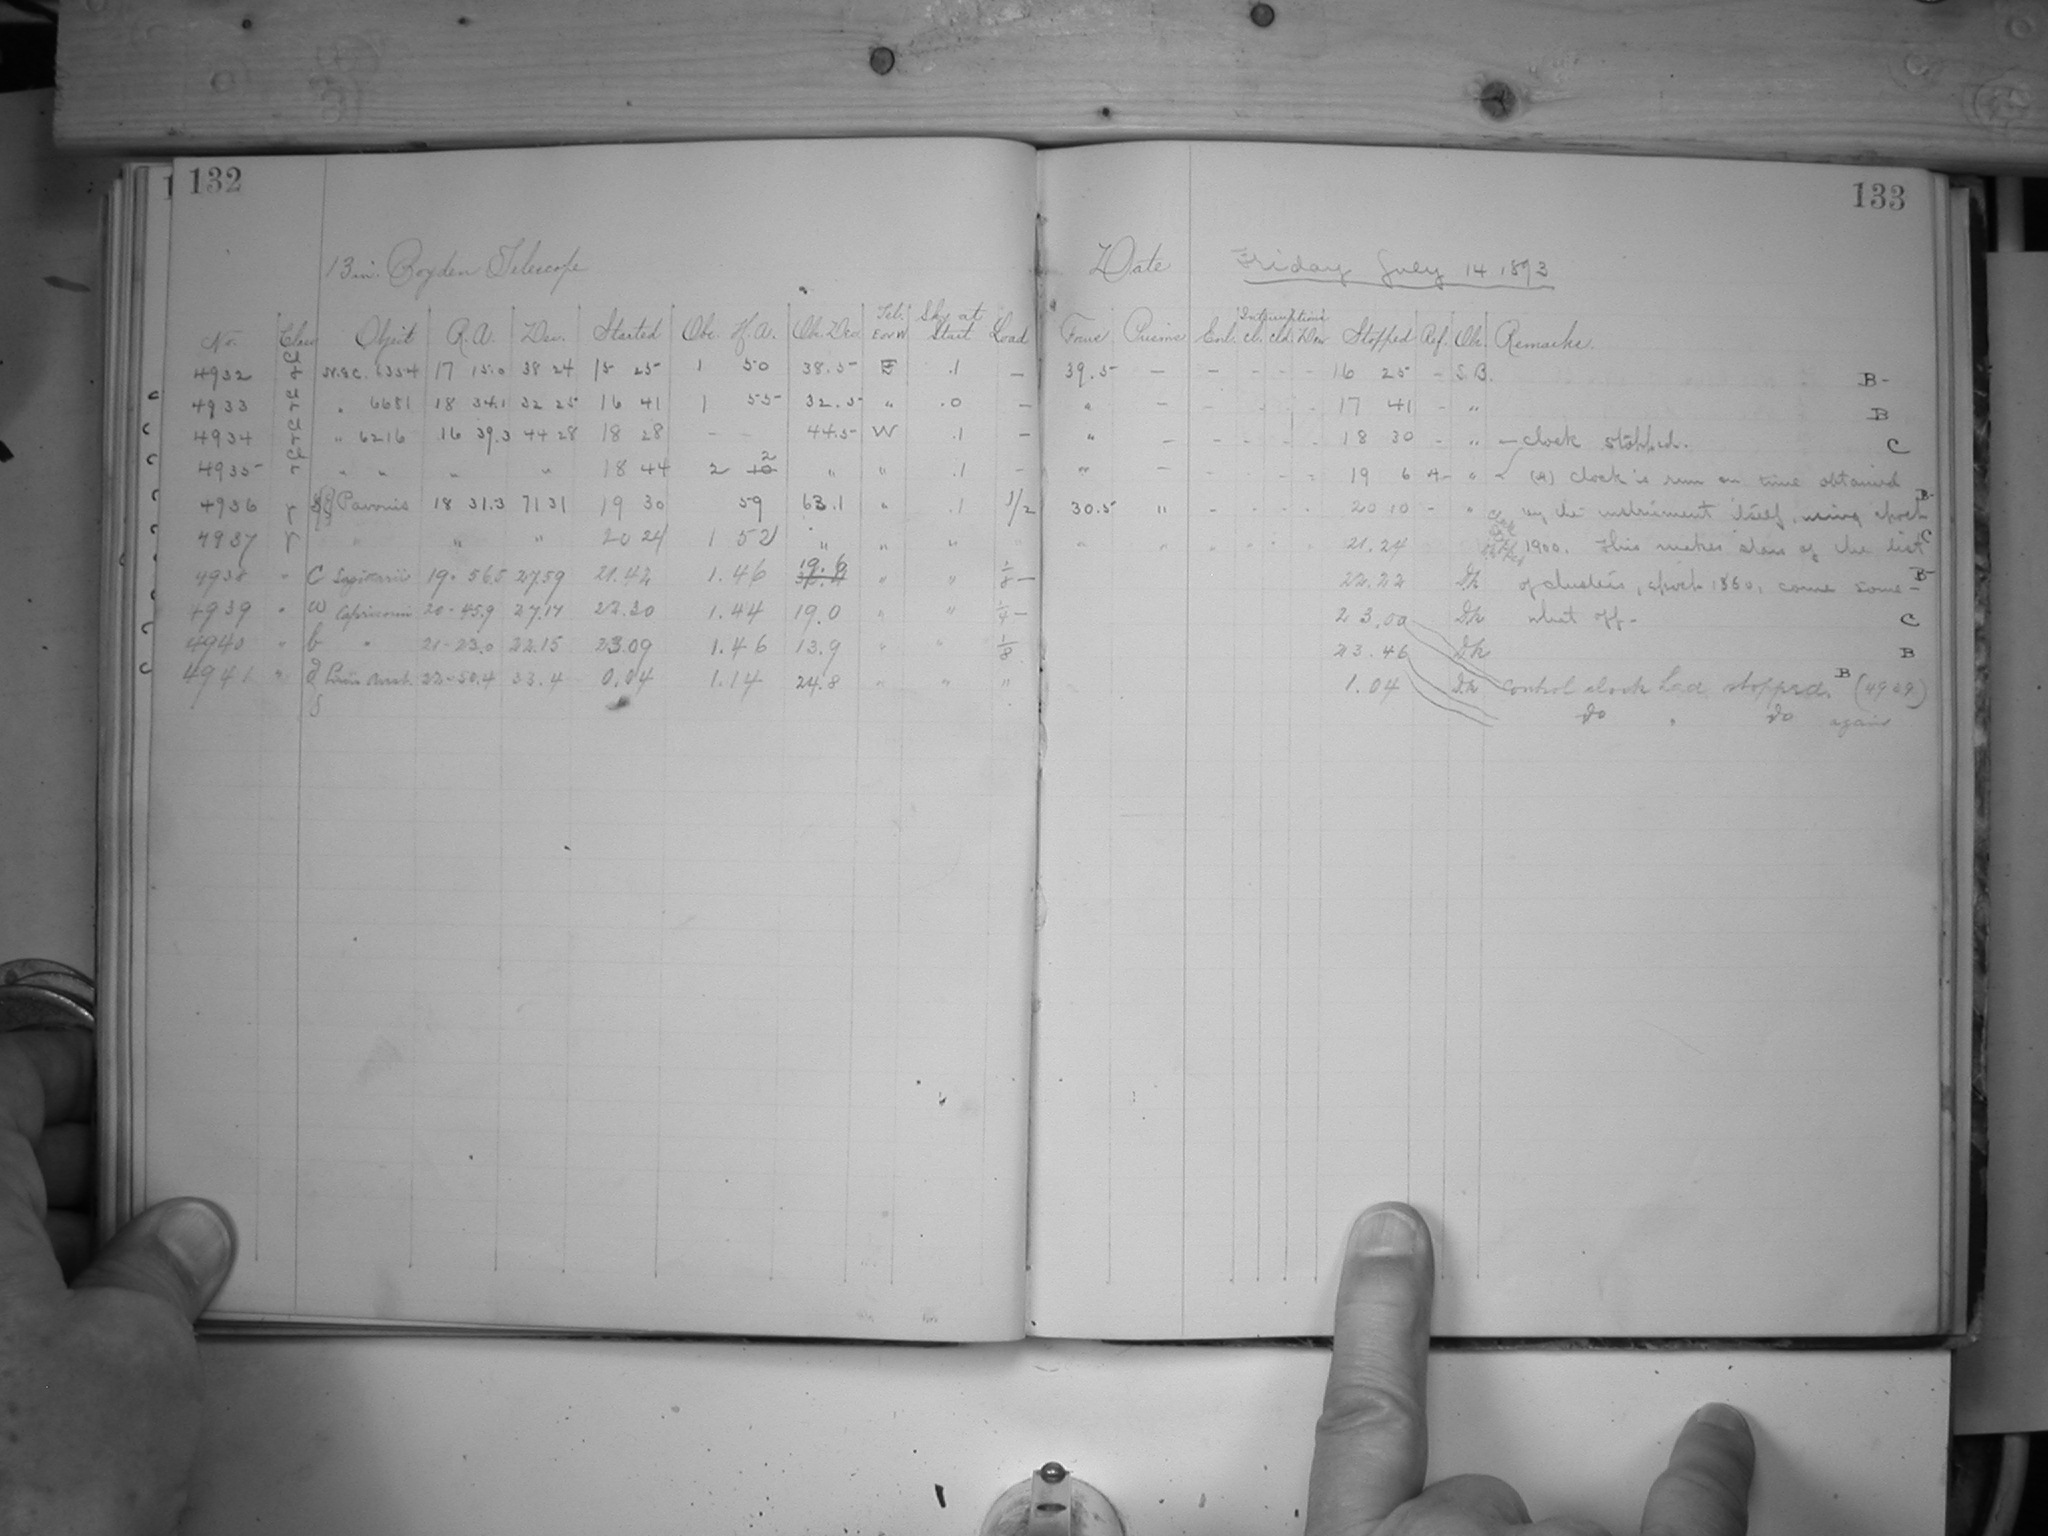 132
133
13 in. Boyden Telescope
Date Friday July 14 1893
No. Class Object R.A. Dec. Started Obs. H.A. Ob. Dec. Tel. E or W Sky at Start Load Focus Prisms Enl. Interruptions Cl. Cld. Dew Stopped Ref. Obs. Remarks.
4932 Cl r N.G.C. 6354 17 15.0 38 24 15 25 1 50 38.5 E .1 – 39.5 – – – – – 16 25 – S.B. B-
c 4933 Cl r " 6681 18 34.1 32 25 16 41 1 55 32.5 " .0 – " – – – – – 17 41 – " B
c 4934 Cl r " 6216 16 39.3 44 28 18 28 – – 44.5 W .1 – " – – – – – 18 30 – " – clock stopped. C
c 4935 Cl r " " " " 18 44 2 10 2 " " .1 – " – – – – – 19 6 A- " (a) Clock is run on time obtained
4936 r Pavonis 18 31.3 71 31 19 30 59 63.1 " .1 1/2 30.5 " – – – – 20 10 – " by the instrument itself, using epoch B-
4937 r " " " 20 24 1 52 " " " " " " 21.24 1900. This makes stars of the list C
4938 " C Sagittarii 19. 56.5 27.59 21.42 1.46 19.6 " " 1/8 – 22.22 Dk of clusters, epoch 1860, come some- B-
4939 " ω Capricorni 20-45.9 27.17 22.20 1.44 19.0 " " 1/4 – 23.00 Dk what off- C
4940 " b " 21-23.0 22.15 23.09 1.46 13.9 " " 1/8 23.46 Dk B
c 4941 " Piscis Aust. 22-50.4 33.4 0.04 1.14 24.8 " " " 1.04 Dk Control clock had stopped. B (4939)
Do " Do again